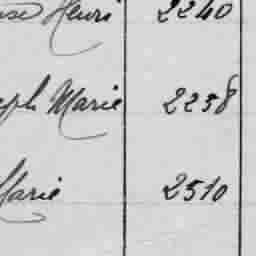 Henri 2240
Marie 2258
Marie 2510